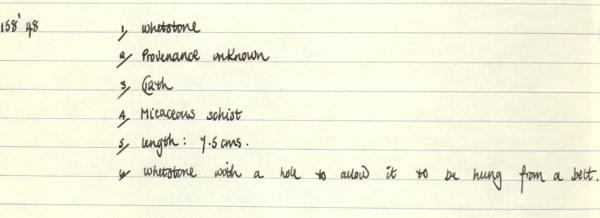 158'48
1, whetstone
2, Provenance unknown
3, C12th
4, Micaceous schist
5, length: 7.5 cms.
6, whetstone with a hole to allow it to be hung from a belt.